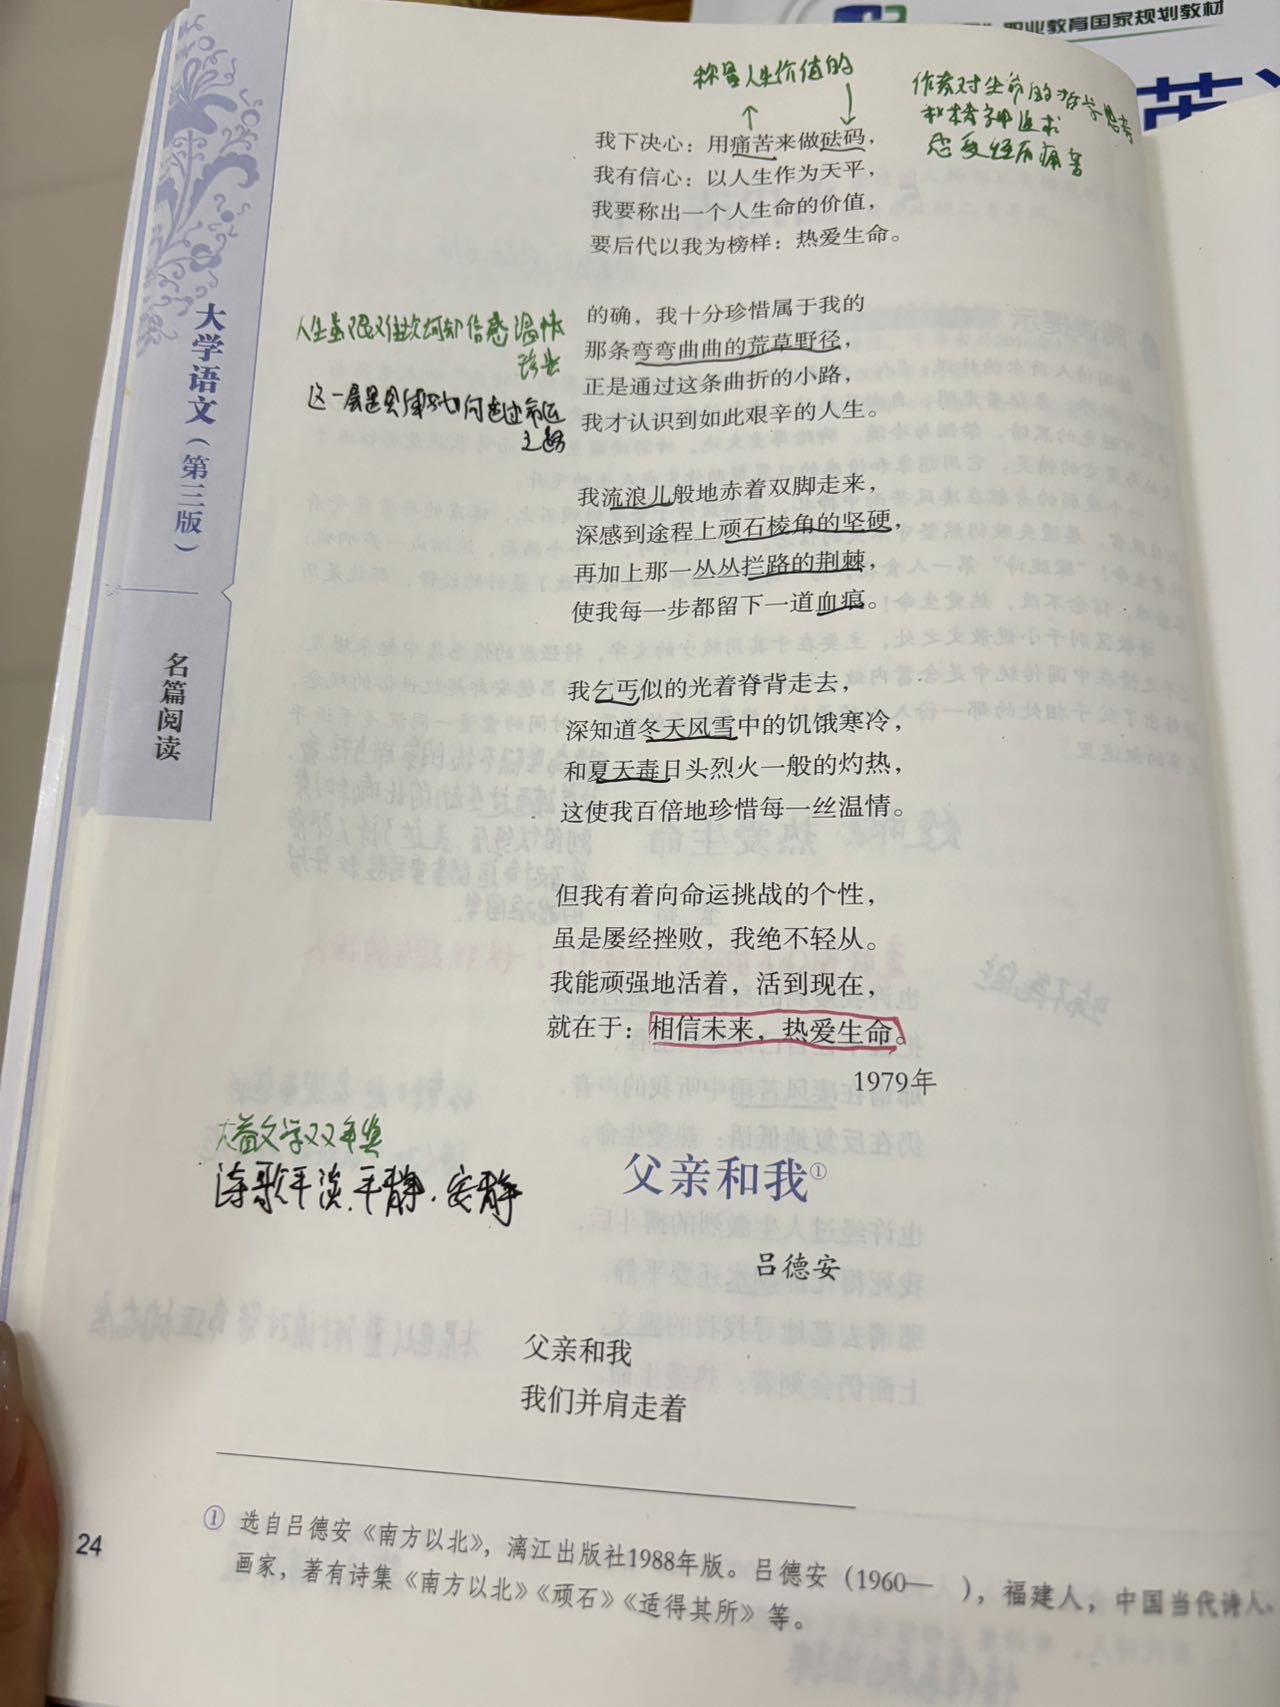 职业教育国家规划教材
大学语文（第三版）
名篇阅读
称量人生价值的
作者对生命的哲学思考
和精神追求
感受经历痛苦
我下决心：用痛苦来做砝码，
我有信心：以人生作为天平，
我要称出一个人生命的价值，
要后代以我为榜样：热爱生命。
的确，我十分珍惜属于我的
那条弯弯曲曲的荒草野径，
正是通过这条曲折的小路，
我才认识到如此艰辛的人生。
我流浪儿般地赤着双脚走来，
深感到途程上顽石棱角的坚硬，
再加上那一丛丛拦路的荆棘，
使我每一步都留下一道血痕。
我乞丐似的光着脊背走去，
深知道冬天风雪中的饥饿寒冷，
和夏天毒日头烈火一般的灼热，
这使我百倍地珍惜每一丝温情。
但我有着向命运挑战的个性，
虽是屡经挫败，我绝不轻从。
我能顽强地活着，活到现在，
就在于：相信未来，热爱生命。
1979年
文学双年奖
诗歌平淡.平静.安静
父亲和我①
吕德安
父亲和我
我们并肩走着
① 选自吕德安《南方以北》，漓江出版社1988年版。吕德安（1960— ），福建人，中国当代诗人、
画家，著有诗集《南方以北》《顽石》《适得其所》等。
24